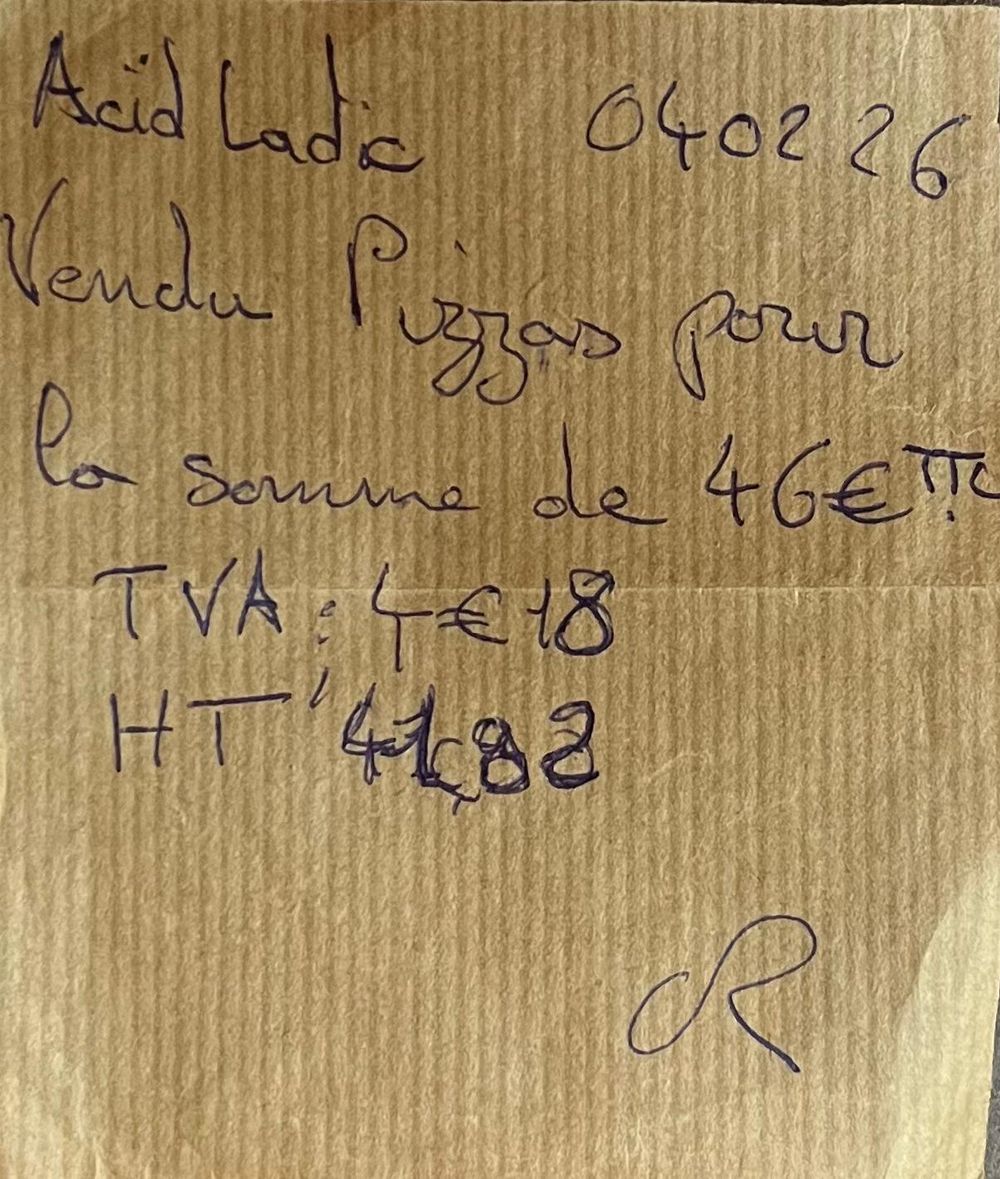 Acïd Ladic 040226
Vendu Pizzas pour
la somme de 46€ TTC
TVA : 4€18
HT 41,82
R